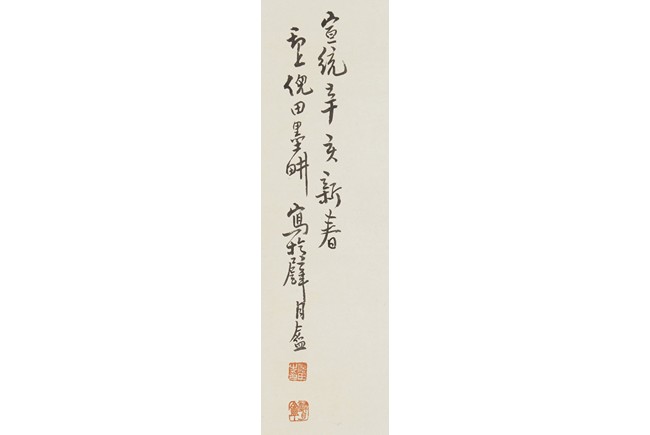 宣統辛亥新春
邗上倪田墨畊寫於璧月盦